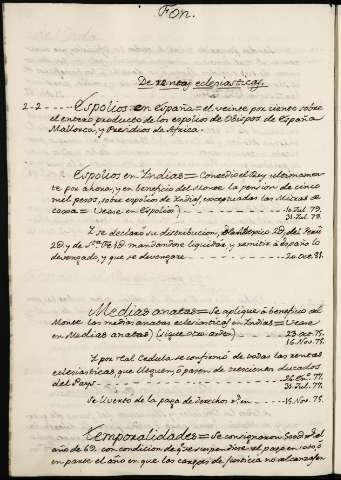 Fon.
De rentas eclesiasticas.
2-2 Espolios en España = el veinte por ciento sobre
el entero producto de los espolios de Obispos de España
Mallorca, y Presidios de Africa.
Espolios en Indias = Concedio el Rey ultimamen-
te por ahora, y en beneficio del Monte la pension de cinco
mil pesos, sobre espolios de Indias, exceptuadas las Mitras de
(Vease en Espolios) 10 Jul. 79.
31. Jul. 79.
Y se declaró su distribucion, 2@, del Perú
2@ y de Sta. Fe 1@ mandandose liquidar, y remitir á España lo
devengado, y que se devengare 20 Oct. 81.
Medias anatas = Se aplique á beneficio del
Monte las medias anatas eclesiasticas en Indias = Vease
en Medias anatas) (sigue otra orden) 23 Oct. 75.
16. Nov. 75.
Y por Real Cedula se confirmó de todas las rentas
eclesiasticas, que lleguen, ó pasen de trescientos ducados
del Pays 26 En. 77.
31. Jul. 77.
de la paga de derechos 15. Nov. 75.
Temporalidades = Se consignaron
año de 69. con condicion de qe. se suspendiere el pago en todo, ó
en parte el año en que las cargas de Justicia no alcanzasen